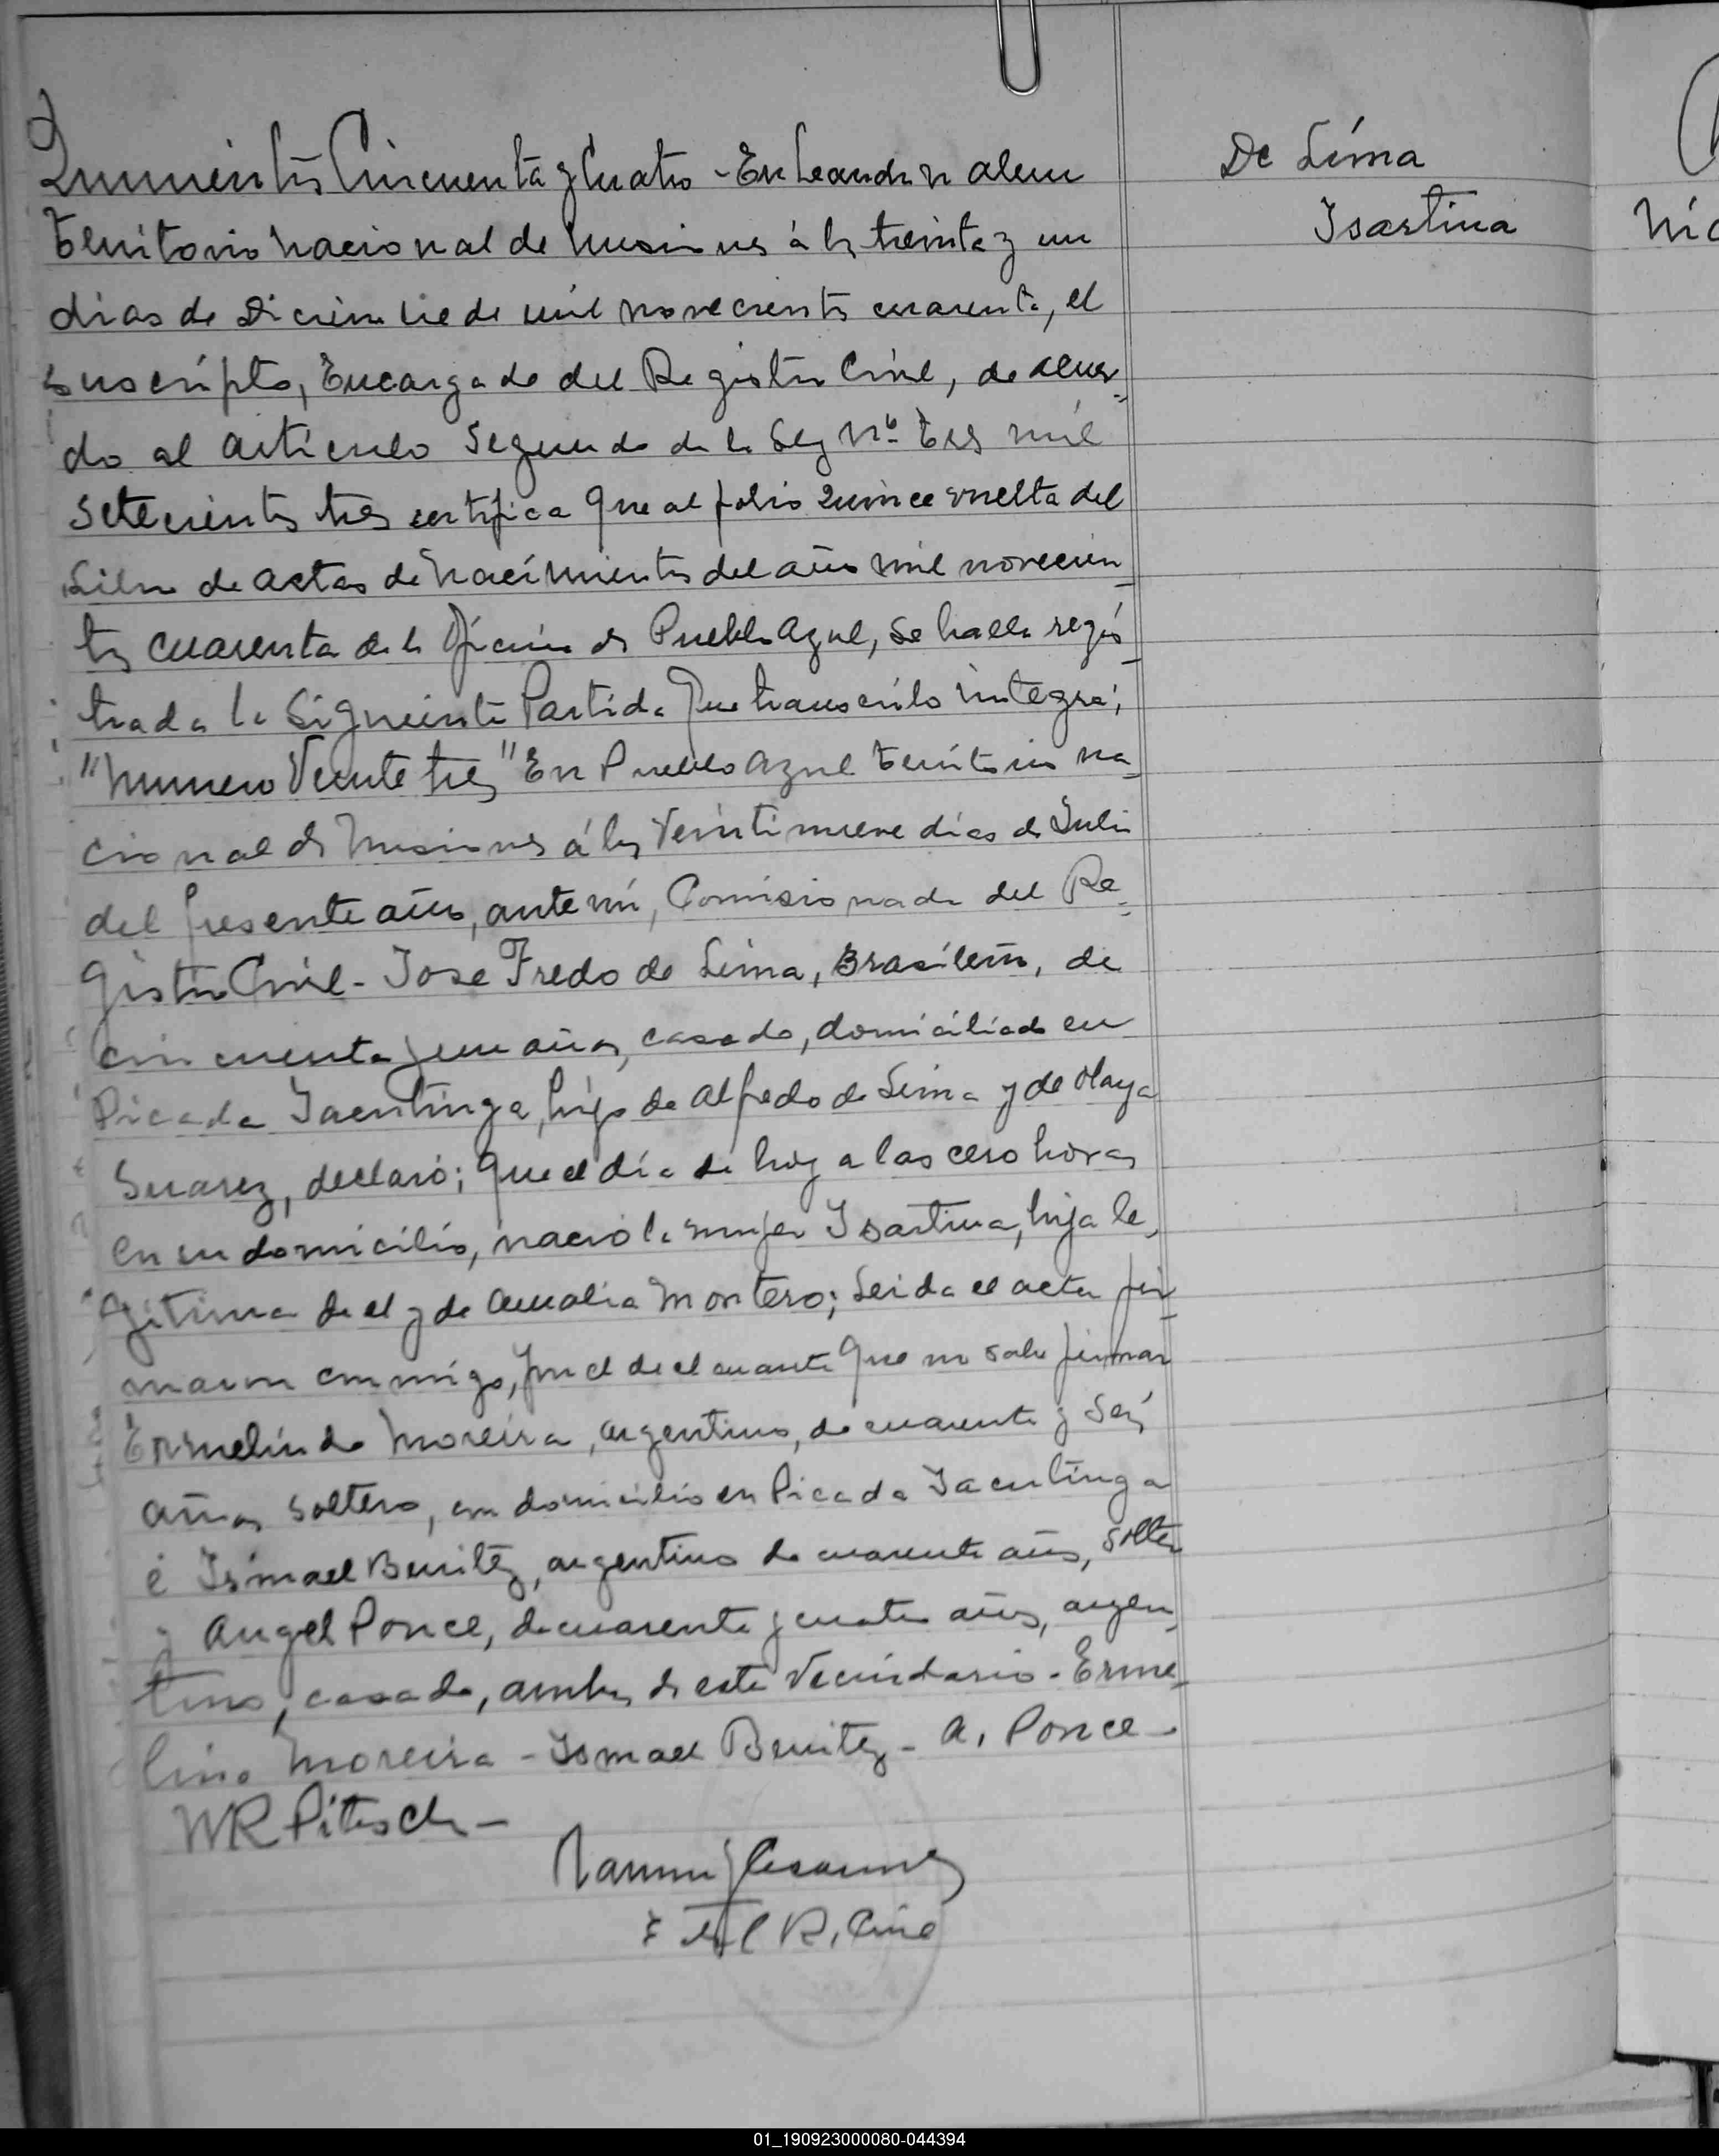 Quinientos Cincuenta y Cuatro - En Leandro N Alem
Territorio Nacional de Misiones á los treinta y un
dias de Diciembre de mil novecientos cuarenta, el
suscripto, Encargado del Registro Civil, de acuer-
do al artículo Segundo de la Ley Nº Tres mil
setecientos tres certifica que al folio quince vuelta del
Libro de actas de Nacimientos del año mil novecien-
tos cuarenta de la Oficina de Pueblo Azul, se halla regis-
trada la Siguiente Partida que transcribo integra;
"Numero Veinte tres" En Pueblo Azul Territorio na-
cional de Misiones á los Veintinueve dias de Julio
del presente año, ante mí, Comisionada del Re-
gistro Civil - Jose Fredo de Lima, Brasileño, de
cincuenta y un años, casado, domiciliado en
Picada Jacutinga, hijo de Alfredo de Lima y de Olaya
Suarez, declaró; que el día de hoy a las cero horas
en su domicilio, nació la mujer Isartina, hija le-
gitima de el y de Amalia Montero; Leida el acta fir-
maron conmigo, por el declarante que no sabe firmar
Ermelindo Moreira, argentino, de cuarenta y seis
años soltero, con domicilio en Picada Jacutinga
é Ismael Benitez, argentino de cuarenta años, solte
y Angel Ponce, de cuarenta y cuatro años, argen-
tino, casado, ambos de este Vecindario - Erme-
lino Moreira - Ismael Benitez - A. Ponce -
W R Pitsch -
E del R. Civil
De Lima
Isartina
01_190923000080-044394